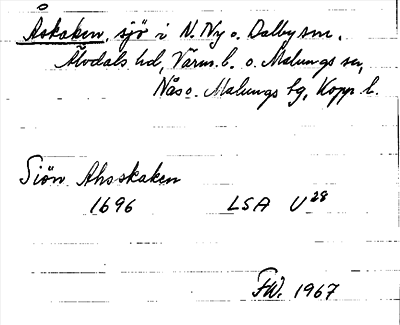 Åskaken, sjö i N. Ny o. Dalby snr,
Älvdals hd, Värml. l. o. Malungs sn,
Nås o. Malungs fg, Kopp. l.
Siön Ahsskaken
1696 LSA U28
FW. 1967